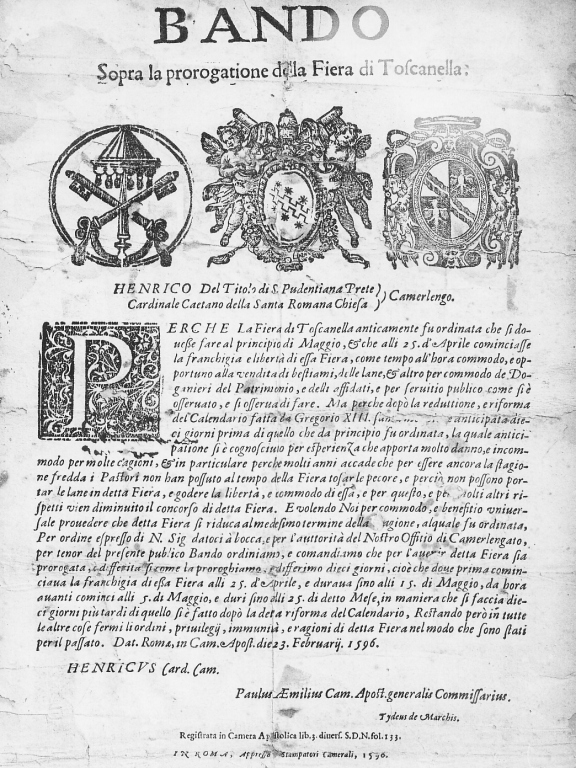 BANDO
Sopra la prorogatione della Fiera di Toscanella:
HENRICO Del Titolo di S. Pudentiana Prete
Cardinale Caetano della Santa Romana Chiesa
) Camerlengo.
PERCHE La Fiera di Toscanella anticamente fu ordinata che si do-
uesse fare al principio di Maggio, & che alli 25. d'Aprile cominciasse
la franchigia e libertà di essa Fiera, come tempo all'hora commodo, e op-
portuno alla vendita di bestiami, delle lane, & altro per commodo de Do-
ganieri del Patrimonio, e delli affidati, e per seruitio publico come si è
osseruato, e si osserua di fare. Ma perche dopò la reduttione, e riforma
del Calendario fatta da Gregorio XIII. è anticipata die-
ci giorni prima di quello che da principio fu ordinata, la quale antici-
patione si è cognosciuto per esperienza che apporta molto danno, e incom-
modo per molte cagioni, & in particulare perche molti anni accade che per essere ancora la stagio-
ne fredda i Pastori non han possuto al tempo della Fiera tosar le pecore, e perciò non possono por-
tar le lane in detta Fiera, e godere la libertà, e commodo di essa, e per questo, e per molti altri ri-
spetti vien diminuito il concorso di detta Fiera. E volendo Noi per commodo, e benefitio vniuer-
sale prouedere che detta Fiera si riduca al medesimo termine della stagione, al quale fu ordinata,
Per ordine espresso di N. Sig datoci à bocca, e per l'auttorità del Nostro Offitio di Camerlengato,
per tenor del presente publico Bando ordiniamo, e comandiamo che per l'auenir detta Fiera sia
prorogata, e differita si come la proroghiamo, e differimo dieci giorni, cioè che doue prima comin-
ciaua la franchigia di essa Fiera alli 25. d'Aprile, e duraua sino alli 15. di Maggio, da hora
auanti cominci alli 5. di Maggio, e duri sino alli 25. di detto Mese, in maniera che si faccia die-
ci giorni più tardi di quello si è fatto dopò la detta riforma del Calendario, Restando però in tutte
le altre cose fermi li ordini, priuilegij, immunità, e ragioni di detta Fiera nel modo che sono stati
per il passato. Dat. Romæ, in Cam. Apost. die 23. Februarij. 1596.
HENRICVS Card. Cam.
Paulus Æmilius Cam. Apost. generalis Commissarius.
Tydeus de Marchis.
Registrata in Camera Apostolica lib. 3. diuers. S.D.N. fol. 133.
IN ROMA, Appresso Stampatori Camerali, 1596.